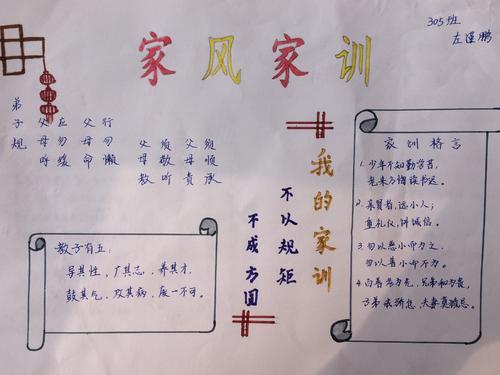 家风家训
305班
弟子规
父母呼
应勿缓
父母命
行勿懒
父母教
须敬听
父母责
须顺承
教子有五:
导其性,广其志,养其才,
鼓其气,攻其病,废一不可。
不成方圆
不以规矩
我的家训
家训格言
1.少年不知勤学苦,
老来方悔读书迟。
2.亲贤者,远小人;
重礼仪,讲诚信。
3.勿以恶小而为之,
勿以善小而不为。
4.百善孝为先,兄弟和为贵,
夫妻莫